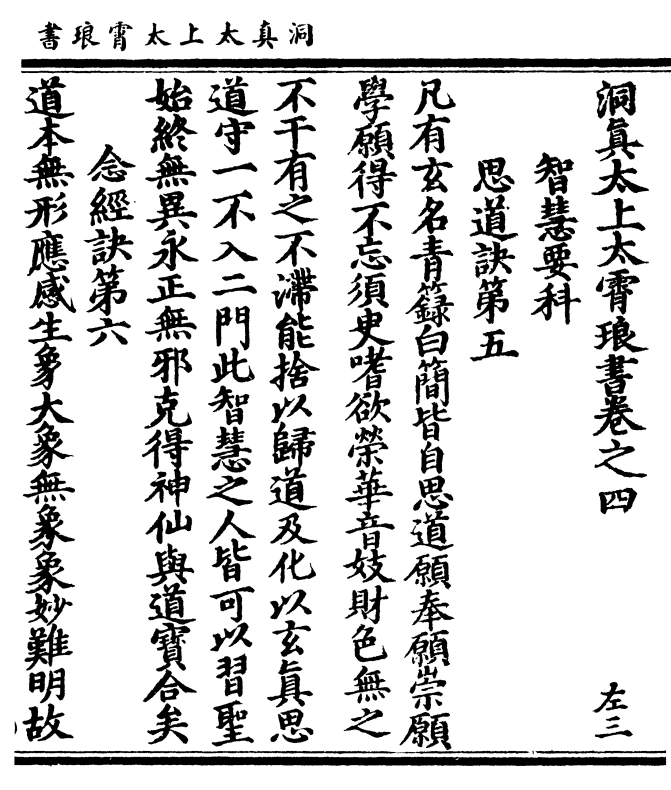 洞真太上太霄琅書
洞真太上太霄琅書卷之四
左三
智慧要科
思道訣第五
凡有玄名青籙白簡皆自思道願奉願崇願
學願得不忘須臾嗜欲榮華音妓財色無之
不干有之不滯能捨以歸道及化以玄真思
道守一不入二門此智慧之人皆可以習聖
始終無異永正無邪克得神仙與道寶合矣
念經訣第六
道本無形應感生象大象無象象妙難明故